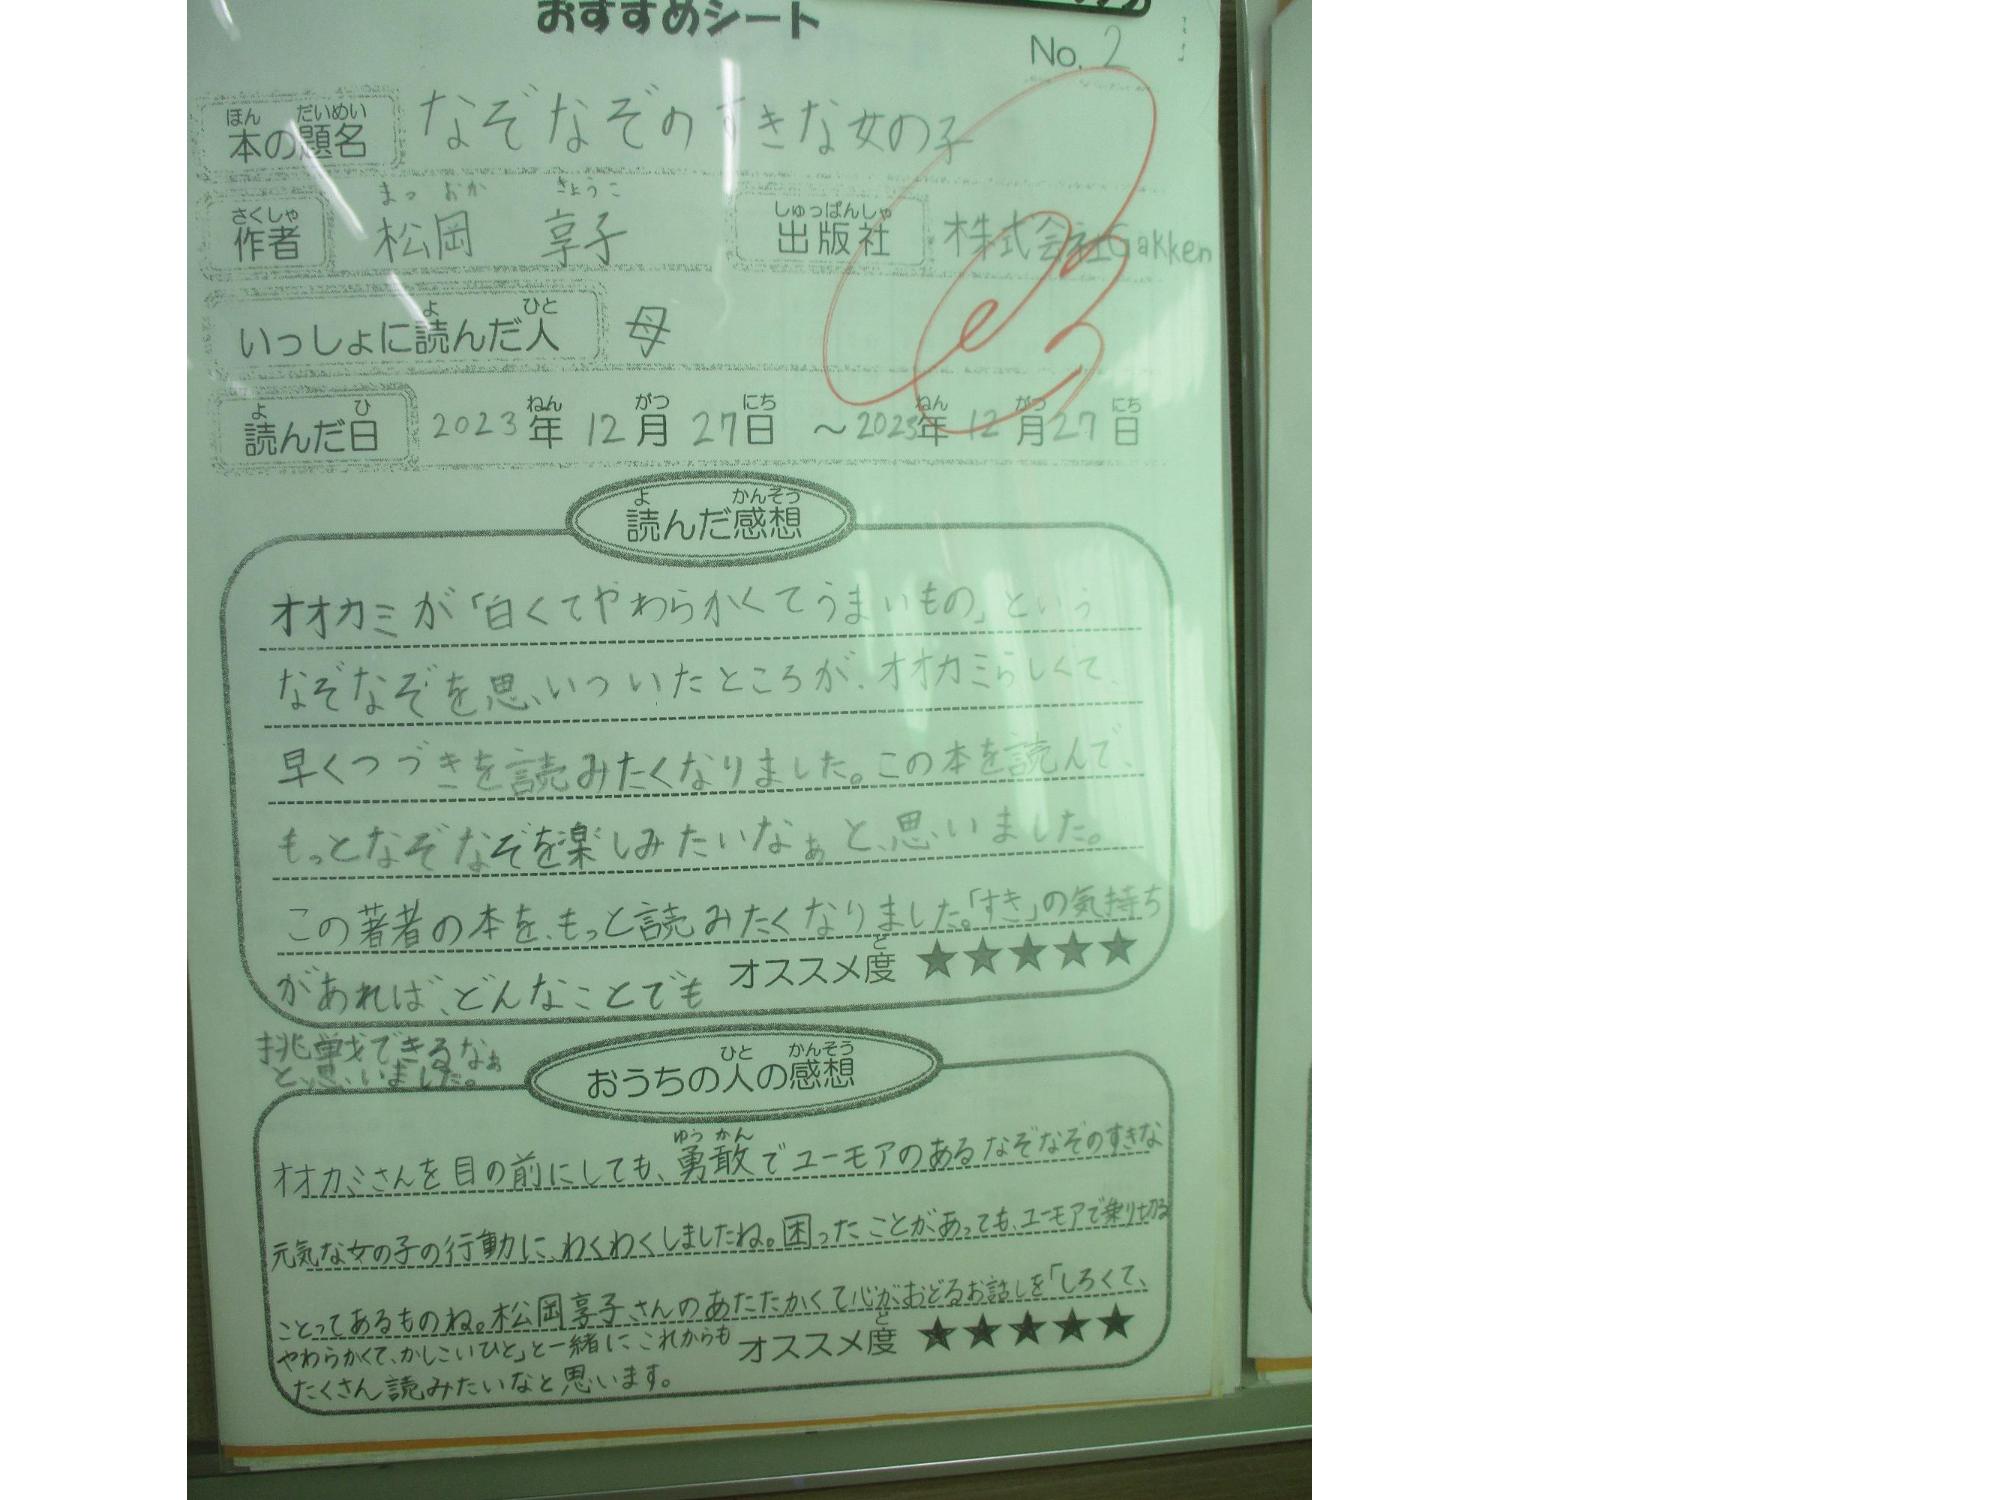 おすすめシート
No. 2
ほん だいめい
本の題名 なぞなぞのすきな女の子
まつ おか きょうこ
さくしゃ しゅっぱんしゃ
作者 松岡 享子 出版社 株式会社Gakken
よ ひと
いっしょに読んだ人 母
よ ひ ねん がつ にち ねん がつ にち
読んだ日 2023年 12月 27日 ～2023年 12月27日
よ かんそう
読んだ感想
オオカミが「白くてやわらかくてうまいもの」という
なぞなぞを思いついたところが、オオカミらしくて、
早くつづきを読みたくなりました。この本を読んで、
もっとなぞなぞを楽しみたいなぁと、思いました。
この著者の本を、もっと読みたくなりました。「すき」の気持ち
ど
があれば、どんなことでも オススメ度 ★★★★★
挑戦できるなぁ
と、思いました。
ひと かんそう
おうちの人の感想
ゆう かん
オオカミさんを目の前にしても、勇敢でユーモアのあるなぞなぞのすきな
元気な女の子の行動に、わくわくしましたね。困ったことがあっても、ユーモアで乗り切る
ことってあるものね。松岡享子さんのあたたかくて心がおどるお話しを「しろくて、
ど
やわらかくて、かしこいひと」と一緒にこれからも オススメ度 ★★★★★
たくさん読みたいなと思います。